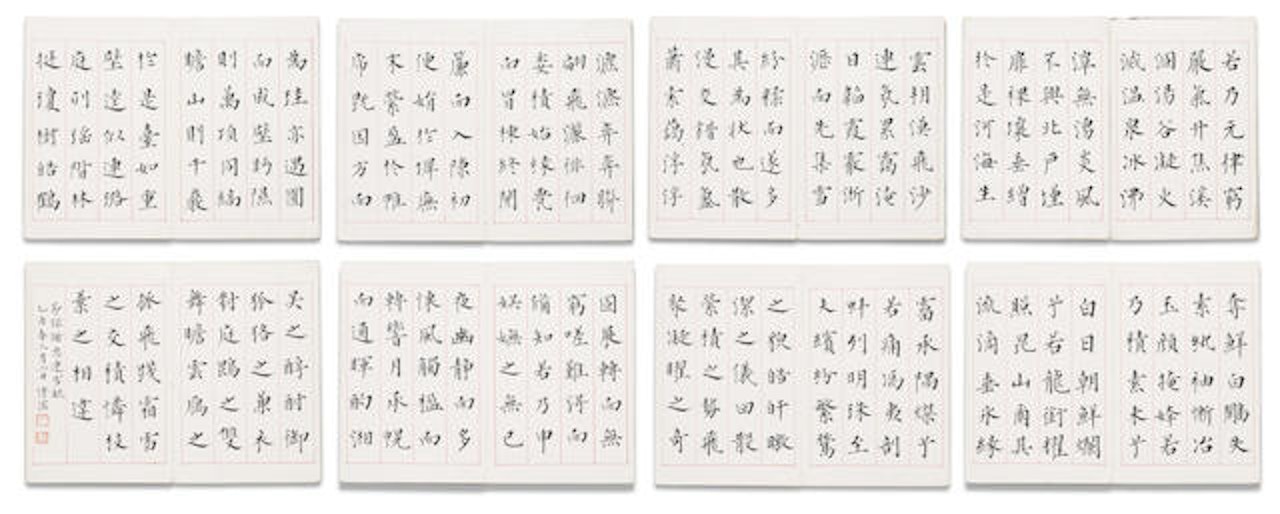 若乃元律窮
嚴氣升焦溪
涸湯谷凝火
滅溫泉冰沸
潭無湧炎風
不興北戶墐
扉裸壤垂繒
於是河海生
雲朔漠飛沙
連氛累靄淹
日韜霞霰淅
瀝而先集雪
紛糅而遂多
其為狀也散
漫交錯氛氳
蕭索藹浮浮
瀌瀌弈弈聯
翩飛灑徘徊
委積始緣甍
而冒棟終開
簾而入隙初
便娟於墀廡
末縈盈於帷
席既因方而
為珪亦遇圓
而成璧眄隰
則萬頃同縞
瞻山則千巖
於是臺如重
璧逵似連璐
庭列瑤階林
挺瓊樹皓鶴
奪鮮白鷴失
素紈袖慚冶
玉顏掩姱若
乃積素未虧
白日朝鮮爛
兮若龍銜耀
照崑山爾其
流滴垂冰緣
霤承隅燦兮
若馮夷剖
蚌列明珠至
夫繽紛繁騖
之貌皓旰曒
潔之儀回散
縈積之勢飛
聚凝曜之奇
固展轉而無
窮嗟難得而
備知若乃申
娛玩之無已
夜幽靜而多
懷風觸楹而
轉響月承幌
而通暉酌湘
吳之醇酎御
狐狢之兼衣
對庭鵾之雙
舞瞻雲雁之
孤飛踐霜雪
之交積憐枝
葉之相違
節錄謝惠連雪賦
溥儒